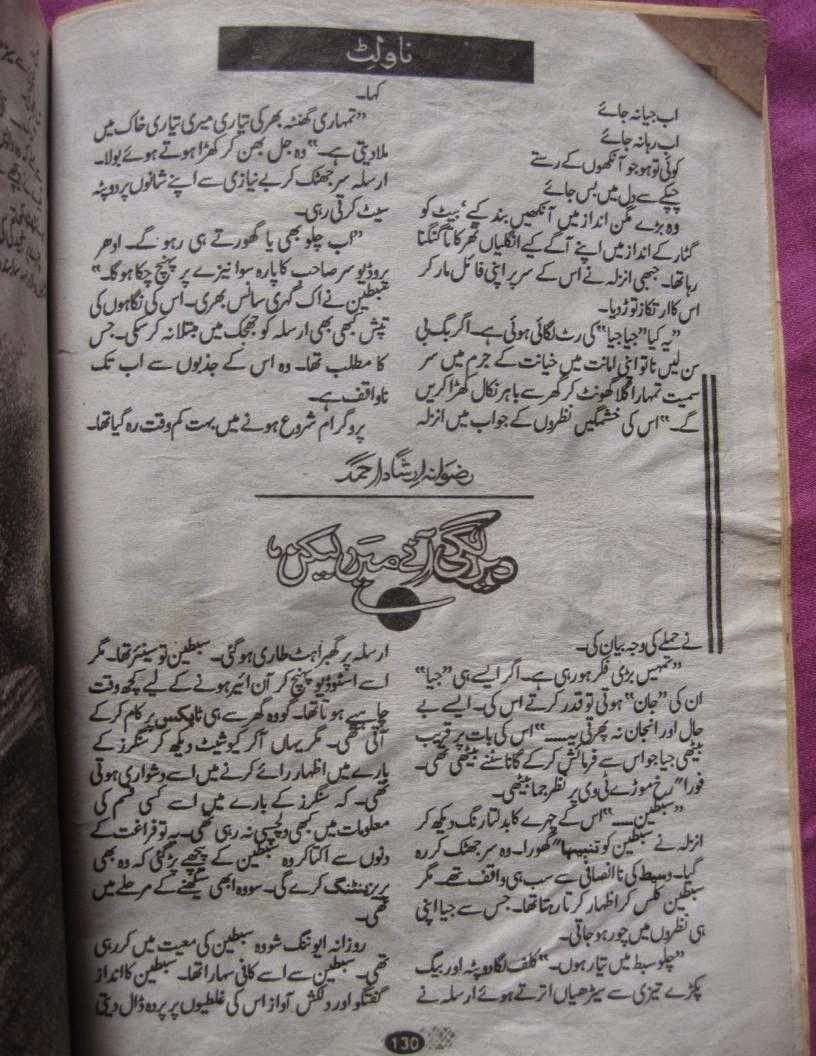 ناولٹ
اب جیا نہ جائے
اب رہا نہ جائے
کوئی تو ہو جو آنکھوں کے رستے
چپکے سے دل میں بس جائے
وہ بڑے مگن انداز میں آنکھیں بند کیے‘ بیٹ کو
گٹار کے انداز میں اپنے آگے کیے انگلیاں تھرکاتا گنگنا
رہا تھا۔ جبھی انزلہ نے اس کے سر پر اپنی فائل مار کر
اس کا ارتکاز توڑ دیا۔
”یہ کیا ”جیا جیا“ کی رٹ لگائی ہوئی ہے۔ اگر بگ بی
سن لیں نا تو اپنی امانت میں خیانت کے جرم میں سر
سمیت تمہارا گلا گھونٹ کر گھر سے باہر نکال کھڑا کریں
گے۔“ اس کی خشمگیں نظروں کے جواب میں انزلہ
نے حملے کی وجہ بیان کی۔
”تمہیں بڑی فکر ہو رہی ہے۔ اگر ایسے ہی ”جیا“
ان کی ”جان“ ہوتی تو قدر کرتے اس کی۔ ایسے بے
حال اور انجان نہ پھرتی یہ۔۔۔۔“ اس کی بات پر قریب
بیٹھی جیا جو اس سے فرمائش کر کے گانا سننے بیٹھی تھی۔
فورا“ رخ موڑے ٹی وی پر نظر جما بیٹھی۔
”سبطین۔۔۔۔“ اس کے چہرے کا بدلتا رنگ دیکھ کر
انزلہ نے سبطین کو تنبیہا“ گھورا۔ وہ سر جھٹک کر رہ
گیا۔ وسیط کی ناانصافی سے سب ہی واقف تھے۔ مگر
سبطین کھل کر اظہار کرتا رہتا تھا۔ جس سے جیا اپنی
ہی نظروں میں چور ہو جاتی۔
”چلو سبط میں تیار ہوں۔“ کلف لگا دوپٹہ اور بیگ
پکڑے تیزی سے سیڑھیاں اترتے ہوئے ارسلہ نے
کہا۔
”تمہاری گھنٹہ بھر کی تیاری میری تیاری خاک میں
ملا دیتی ہے۔“ وہ جل بھن کر کھڑا ہوتے ہوئے بولا۔
ارسلہ سر جھٹک کر بے نیازی سے اپنے شانوں پر دوپٹہ
سیٹ کرتی رہی۔
”اب چلو بھی یا گھورتے ہی رہو گے۔ ادھر
پروڈیو سر صاحب کا پارہ سوا نیزے پر پہنچ چکا ہوگا۔“
سبطین نے اک گہری سانس بھری۔ اس کی نگاہوں کی
تپش کبھی بھی ارسلہ کو جھجک میں مبتلا نہ کر سکی۔ جس
کا مطلب تھا۔ وہ اس کے جذبوں سے اب تک
ناواقف ہے۔
پروگرام شروع ہونے میں بہت کم وقت رہ گیا تھا۔
رضوانہ ارشاد احمد
دیر لگی آنے میں لیکن‘
ارسلہ پر گھبراہٹ طاری ہو گئی۔ سبطین تو سینئر تھا۔ مگر
اسے اسٹوڈیو پہنچ کر آن ائیر ہونے کے لیے کچھ وقت
چاہیے ہوتا تھا۔ گو وہ گھر سے ہی ٹاپکس پر کام کر کے
آتی تھی۔ مگر یہاں آکر کیو شیٹ دیکھ کر سنگرز کے
بارے میں اظہار رائے کرنے میں اسے دشواری ہوتی
تھی۔ کہ سنگرز کے بارے میں اسے کسی قسم کی
معلومات میں کبھی دلچسپی نہ رہی تھی۔ یہ تو فراغت کے
دنوں سے اکتا کر وہ سبطین کے پیچھے پڑ گئی کہ وہ بھی
پریزنٹنگ کرے گی۔ سو وہ ابھی سیکھنے کے مرحلے میں
تھی۔
روزانہ ایوننگ شو وہ سبطین کی معیت میں کر رہی
تھی۔ سبطین سے اسے کافی سہارا تھا۔ سبطین کا انداز
گفتگو اور دلکش آواز اس کی غلطیوں پر پردہ ڈال دیتی
130